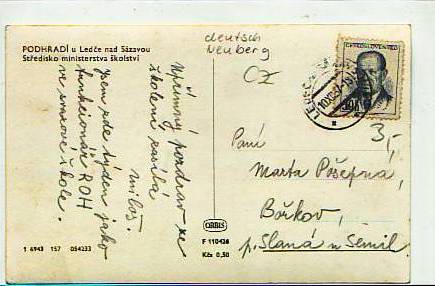 PODHRADÍ u Ledče nad Sázavou
Středisko ministerstva školství
deutsch
Neuberg
ČESKOSLOVENSKO
3,-
Upřímný pozdrav ze
školení zasílá
Miloš.
Jsem zde týden jako
funkcionář ROH
ve smíové škole.
Paní
Marta Pošepná,
Bořkov,
p. Slaná u Semil
ORBIS
F 110426
Kčs 0,50
1 6943 157 054233